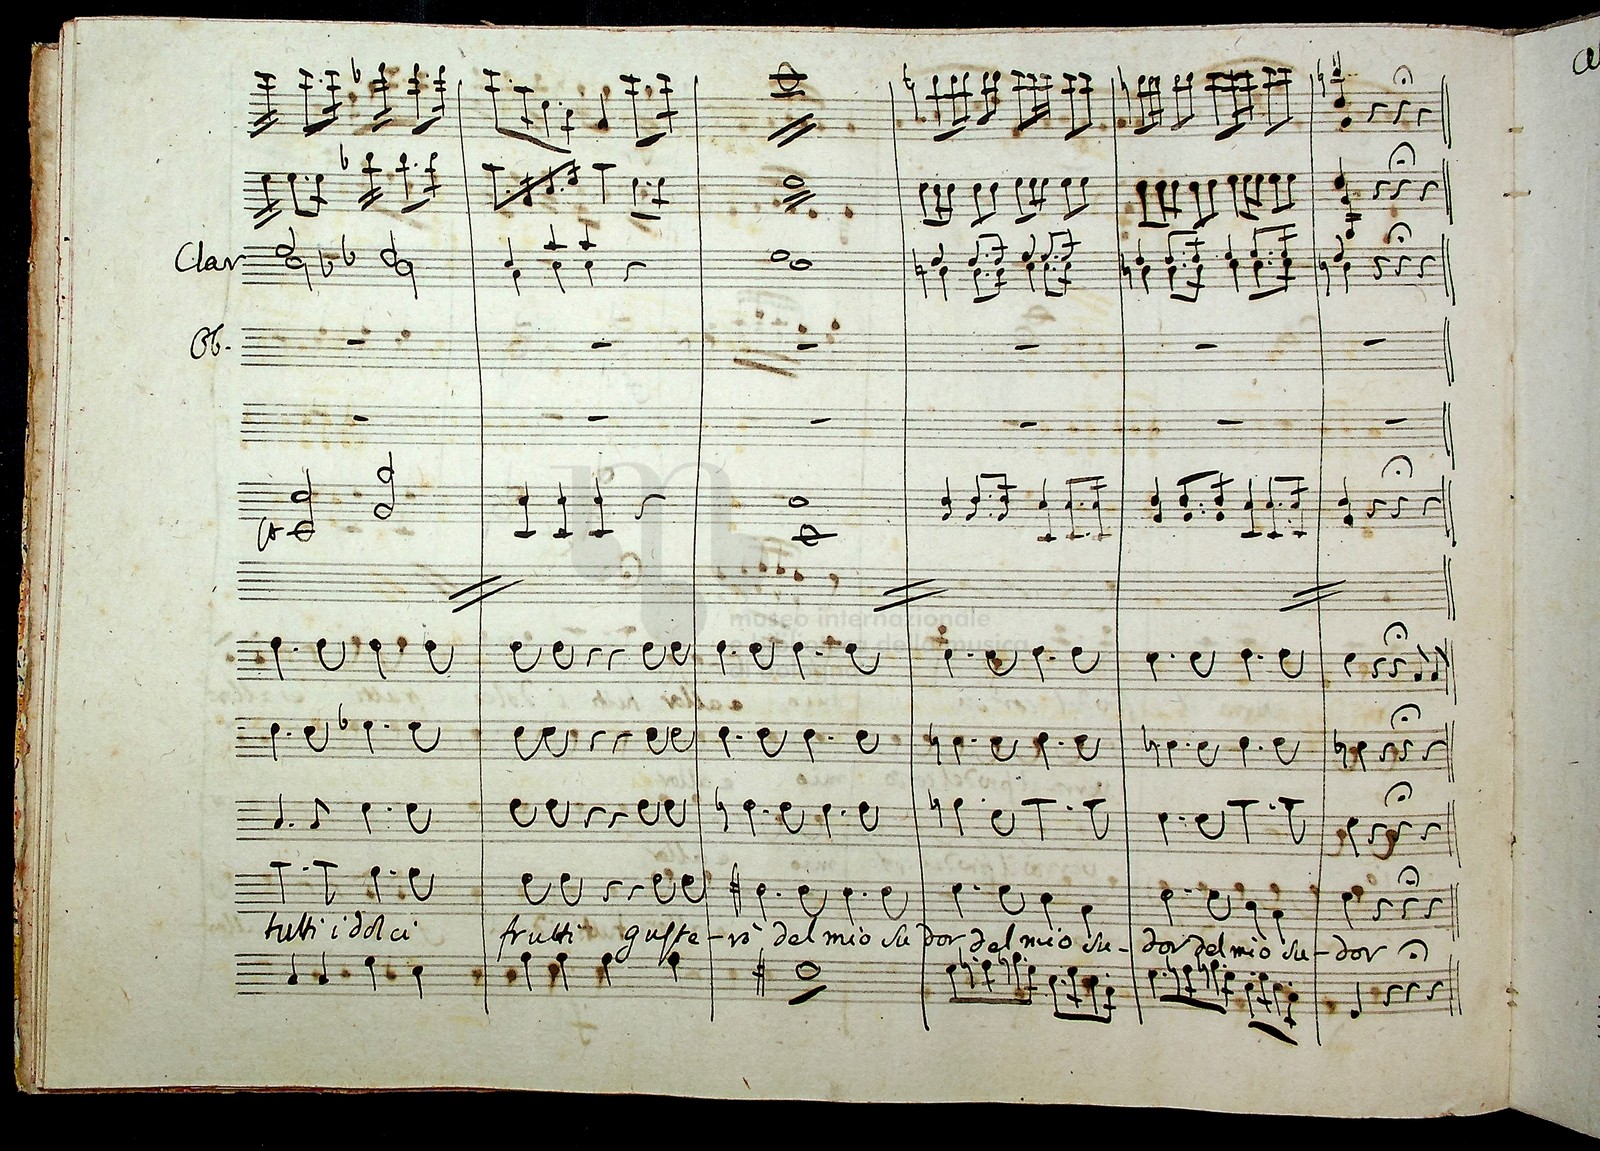 Clar
Ob.
museo internazionale
e biblioteca della musica
tutti i dolci frutti guste-rò del mio su dor del mio su-dor del mio su-dor